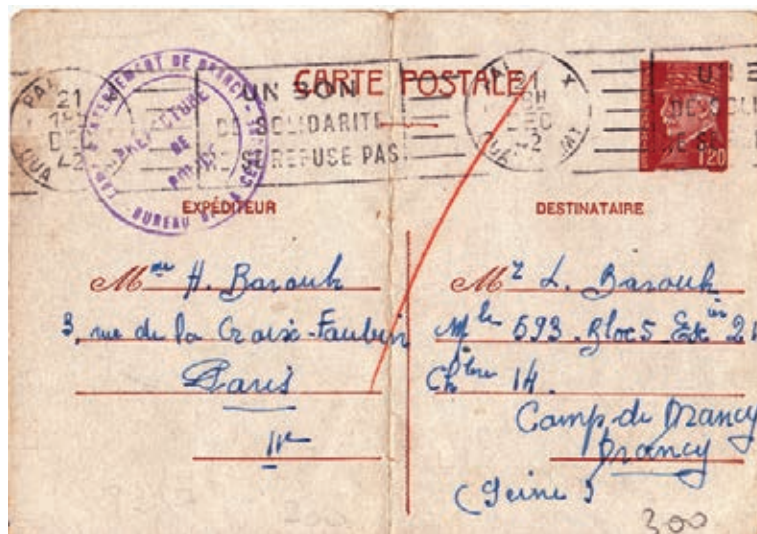 CARTE POSTALE
UN BON
DE SOLIDARITE
SE REFUSE PAS
21
DEC
42
CAMP D'INTERNEMENT DE DRANCY
PREFECTURE
DE
POLICE
BUREAU DE LA CENSURE
1,20
EXPÉDITEUR
Mme H. Barouh
3, rue de la Croix-Faubin
Paris
DESTINATAIRE
Mr L. Barouh
Mle 593 - Bloc 5 Esc ier 21
Ch bre 14
Camp de Drancy
Drancy
(Seine)
300